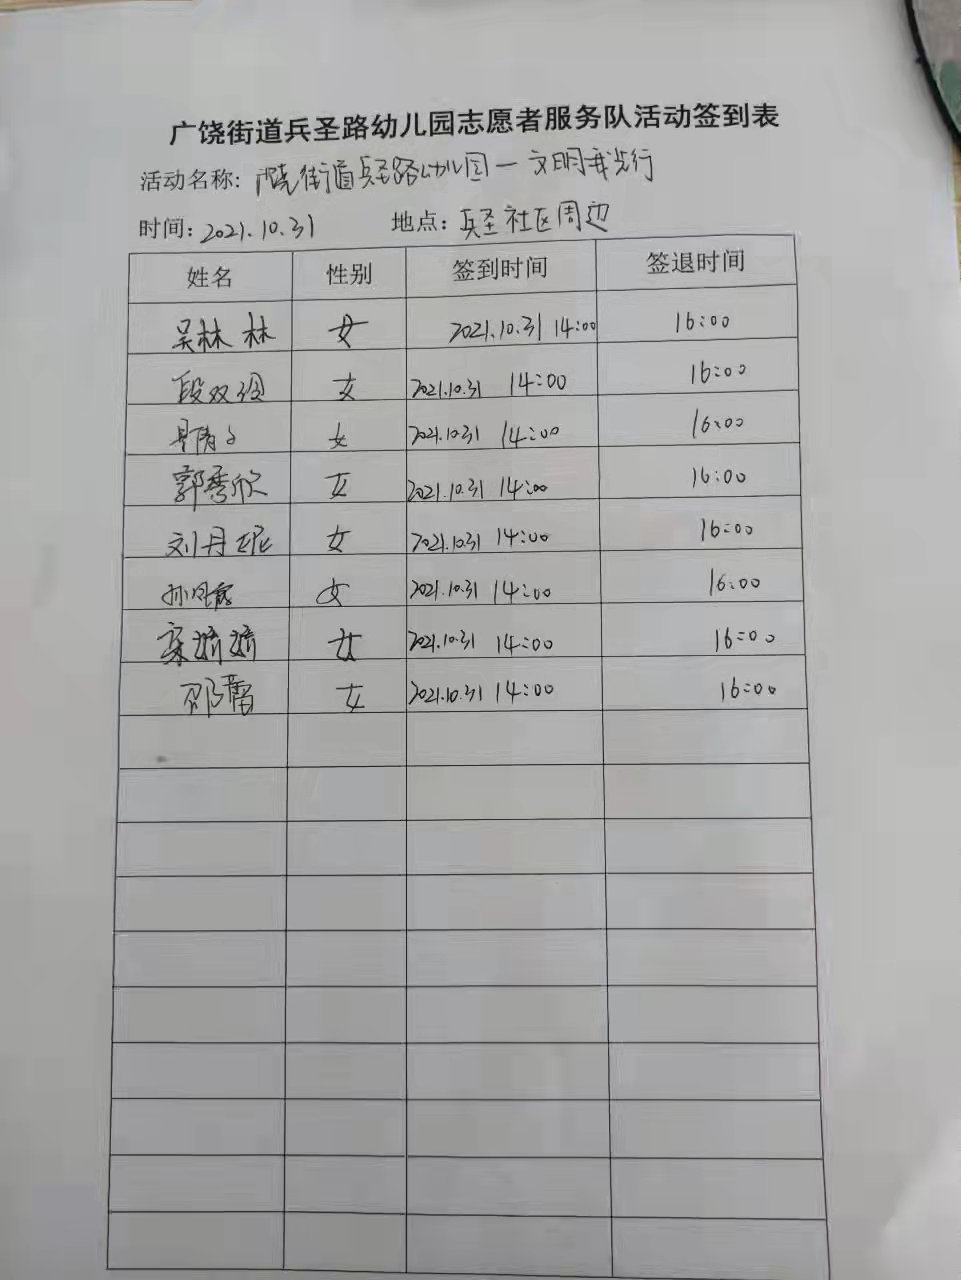 广饶街道兵圣路幼儿园志愿者服务队活动签到表
活动名称: 广饶街道兵圣路幼儿园一文明我先行
时间: 2021.10.31 地点: 兵圣社区周边
姓名 性别 签到时间 签退时间
吴林林 女 2021.10.31 14:00 16:00
段双 女 2021.10.31 14:00 16:00
女 2021.10.31 14:00 16:00
郭秀欣 女 2021.10.31 14:00 16:00
刘丹妮 女 2021.10.31 14:00 16:00
孙凤霞 女 2021.10.31 14:00 16:00
娇娇 女 2021.10.31 14:00 16:00
邵蕾 女 2021.10.31 14:00 16:00